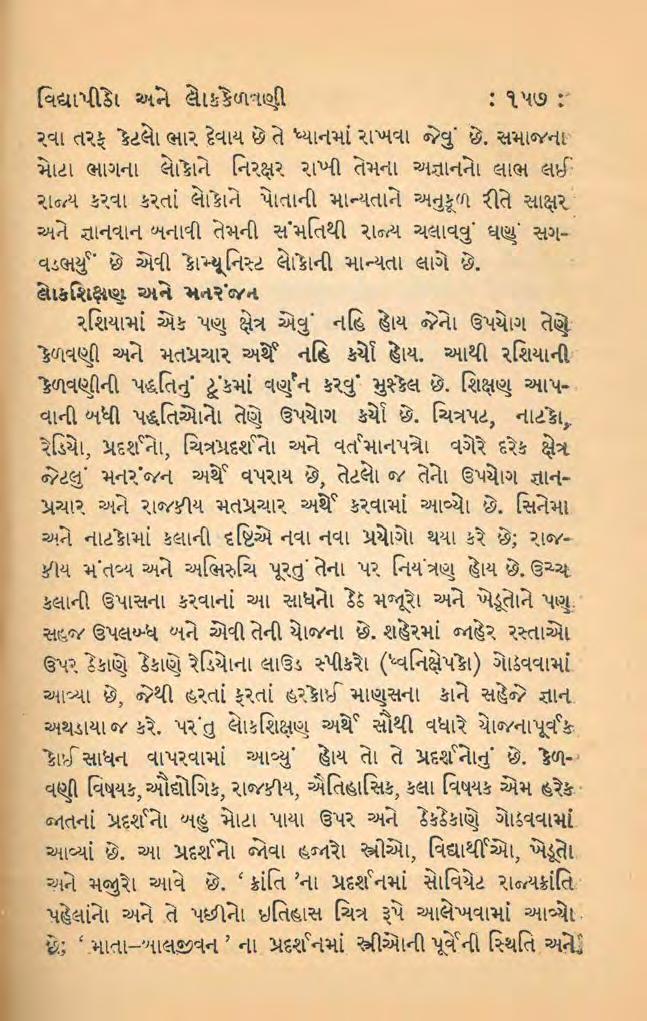 વિદ્યાપીઠો અને લોકકેળવણી : ૧૫૭ :
રવા તરફ કેટલો ભાર દેવાય છે તે ધ્યાનમાં રાખવા જેવું છે. સમાજના
મોટા ભાગના લોકોને નિરક્ષર રાખી તેમના અજ્ઞાનનો લાભ લઈ
રાજ્ય કરવા કરતાં લોકોને પોતાની માન્યતાને અનુકૂળ રીતે સાક્ષર
અને જ્ઞાનવાન બનાવી તેમની સંમતિથી રાજ્ય ચલાવવું ઘણું સગ-
વડભર્યું છે એવી કોમ્યૂનિસ્ટ લોકોની માન્યતા લાગે છે.
લોકશિક્ષણ અને મનરંજન
રશિયામાં એક પણ ક્ષેત્ર એવું નહિ હોય જેનો ઉપયોગ તેણે
કેળવણી અને મતપ્રચાર અર્થે નહિ કર્યો હોય. આથી રશિયાની
કેળવણીની પદ્ધતિનું ટૂંકમાં વર્ણન કરવું મુશ્કેલ છે. શિક્ષણ આપ-
વાની બધી પદ્ધતિઓનો તેણે ઉપયોગ કર્યો છે. ચિત્રપટ, નાટકો,
રેડિયો, પ્રદર્શનો, ચિત્રપ્રદર્શનો અને વર્તમાનપત્રો વગેરે દરેક ક્ષેત્ર
જેટલું મનરંજન અર્થે વપરાય છે, તેટલો જ તેનો ઉપયોગ જ્ઞાન-
પ્રચાર અને રાજકીય મતપ્રચાર અર્થે કરવામાં આવ્યો છે. સિનેમા
અને નાટકોમાં કલાની દૃષ્ટિએ નવા નવા પ્રયોગો થયા કરે છે; રાજ-
કીય મંતવ્ય અને અભિરુચિ પૂરતું તેના પર નિયંત્રણ હોય છે. ઉચ્ચ
કલાની ઉપાસના કરવાનાં આ સાધનો ઠેઠ મજૂરો અને ખેડૂતોને પણ
સહજ ઉપલબ્ધ બને એવી તેની યોજના છે. શહેરમાં જાહેર રસ્તાઓ
ઉપર ઠેકાણે ઠેકાણે રેડિયોના લાઉડ સ્પીકરો (ધ્વનિક્ષેપકો) ગોઠવવામાં
આવ્યા છે, જેથી હરતાં ફરતાં હરકોઈ માણસના કાને સહેજે જ્ઞાન
અથડાયા જ કરે. પરંતુ લોકશિક્ષણ અર્થે સૌથી વધારે યોજનાપૂર્વક
કોઈ સાધન વાપરવામાં આવ્યું હોય તો તે પ્રદર્શનોનું છે. કેળ-
વણી વિષયક, ઔદ્યોગિક, રાજકીય, ઐતિહાસિક, કલા વિષયક એમ હરેક
જાતનાં પ્રદર્શનો બહુ મોટા પાયા ઉપર અને ઠેકઠેકાણે ગોઠવવામાં
આવ્યાં છે. આ પ્રદર્શનો જોવા હજારો સ્ત્રીઓ, વિદ્યાર્થીઓ, ખેડૂતો
અને મજૂરો આવે છે. ‘ ક્રાંતિ ’ના પ્રદર્શનમાં સોવિયેટ રાજ્યક્રાંતિ
પહેલાંનો અને તે પછીનો ઇતિહાસ ચિત્ર રૂપે આલેખવામાં આવ્યો
છે; ‘ માતા–બાલજીવન ’ ના પ્રદર્શનમાં સ્ત્રીઓની પૂર્વેની સ્થિતિ અને